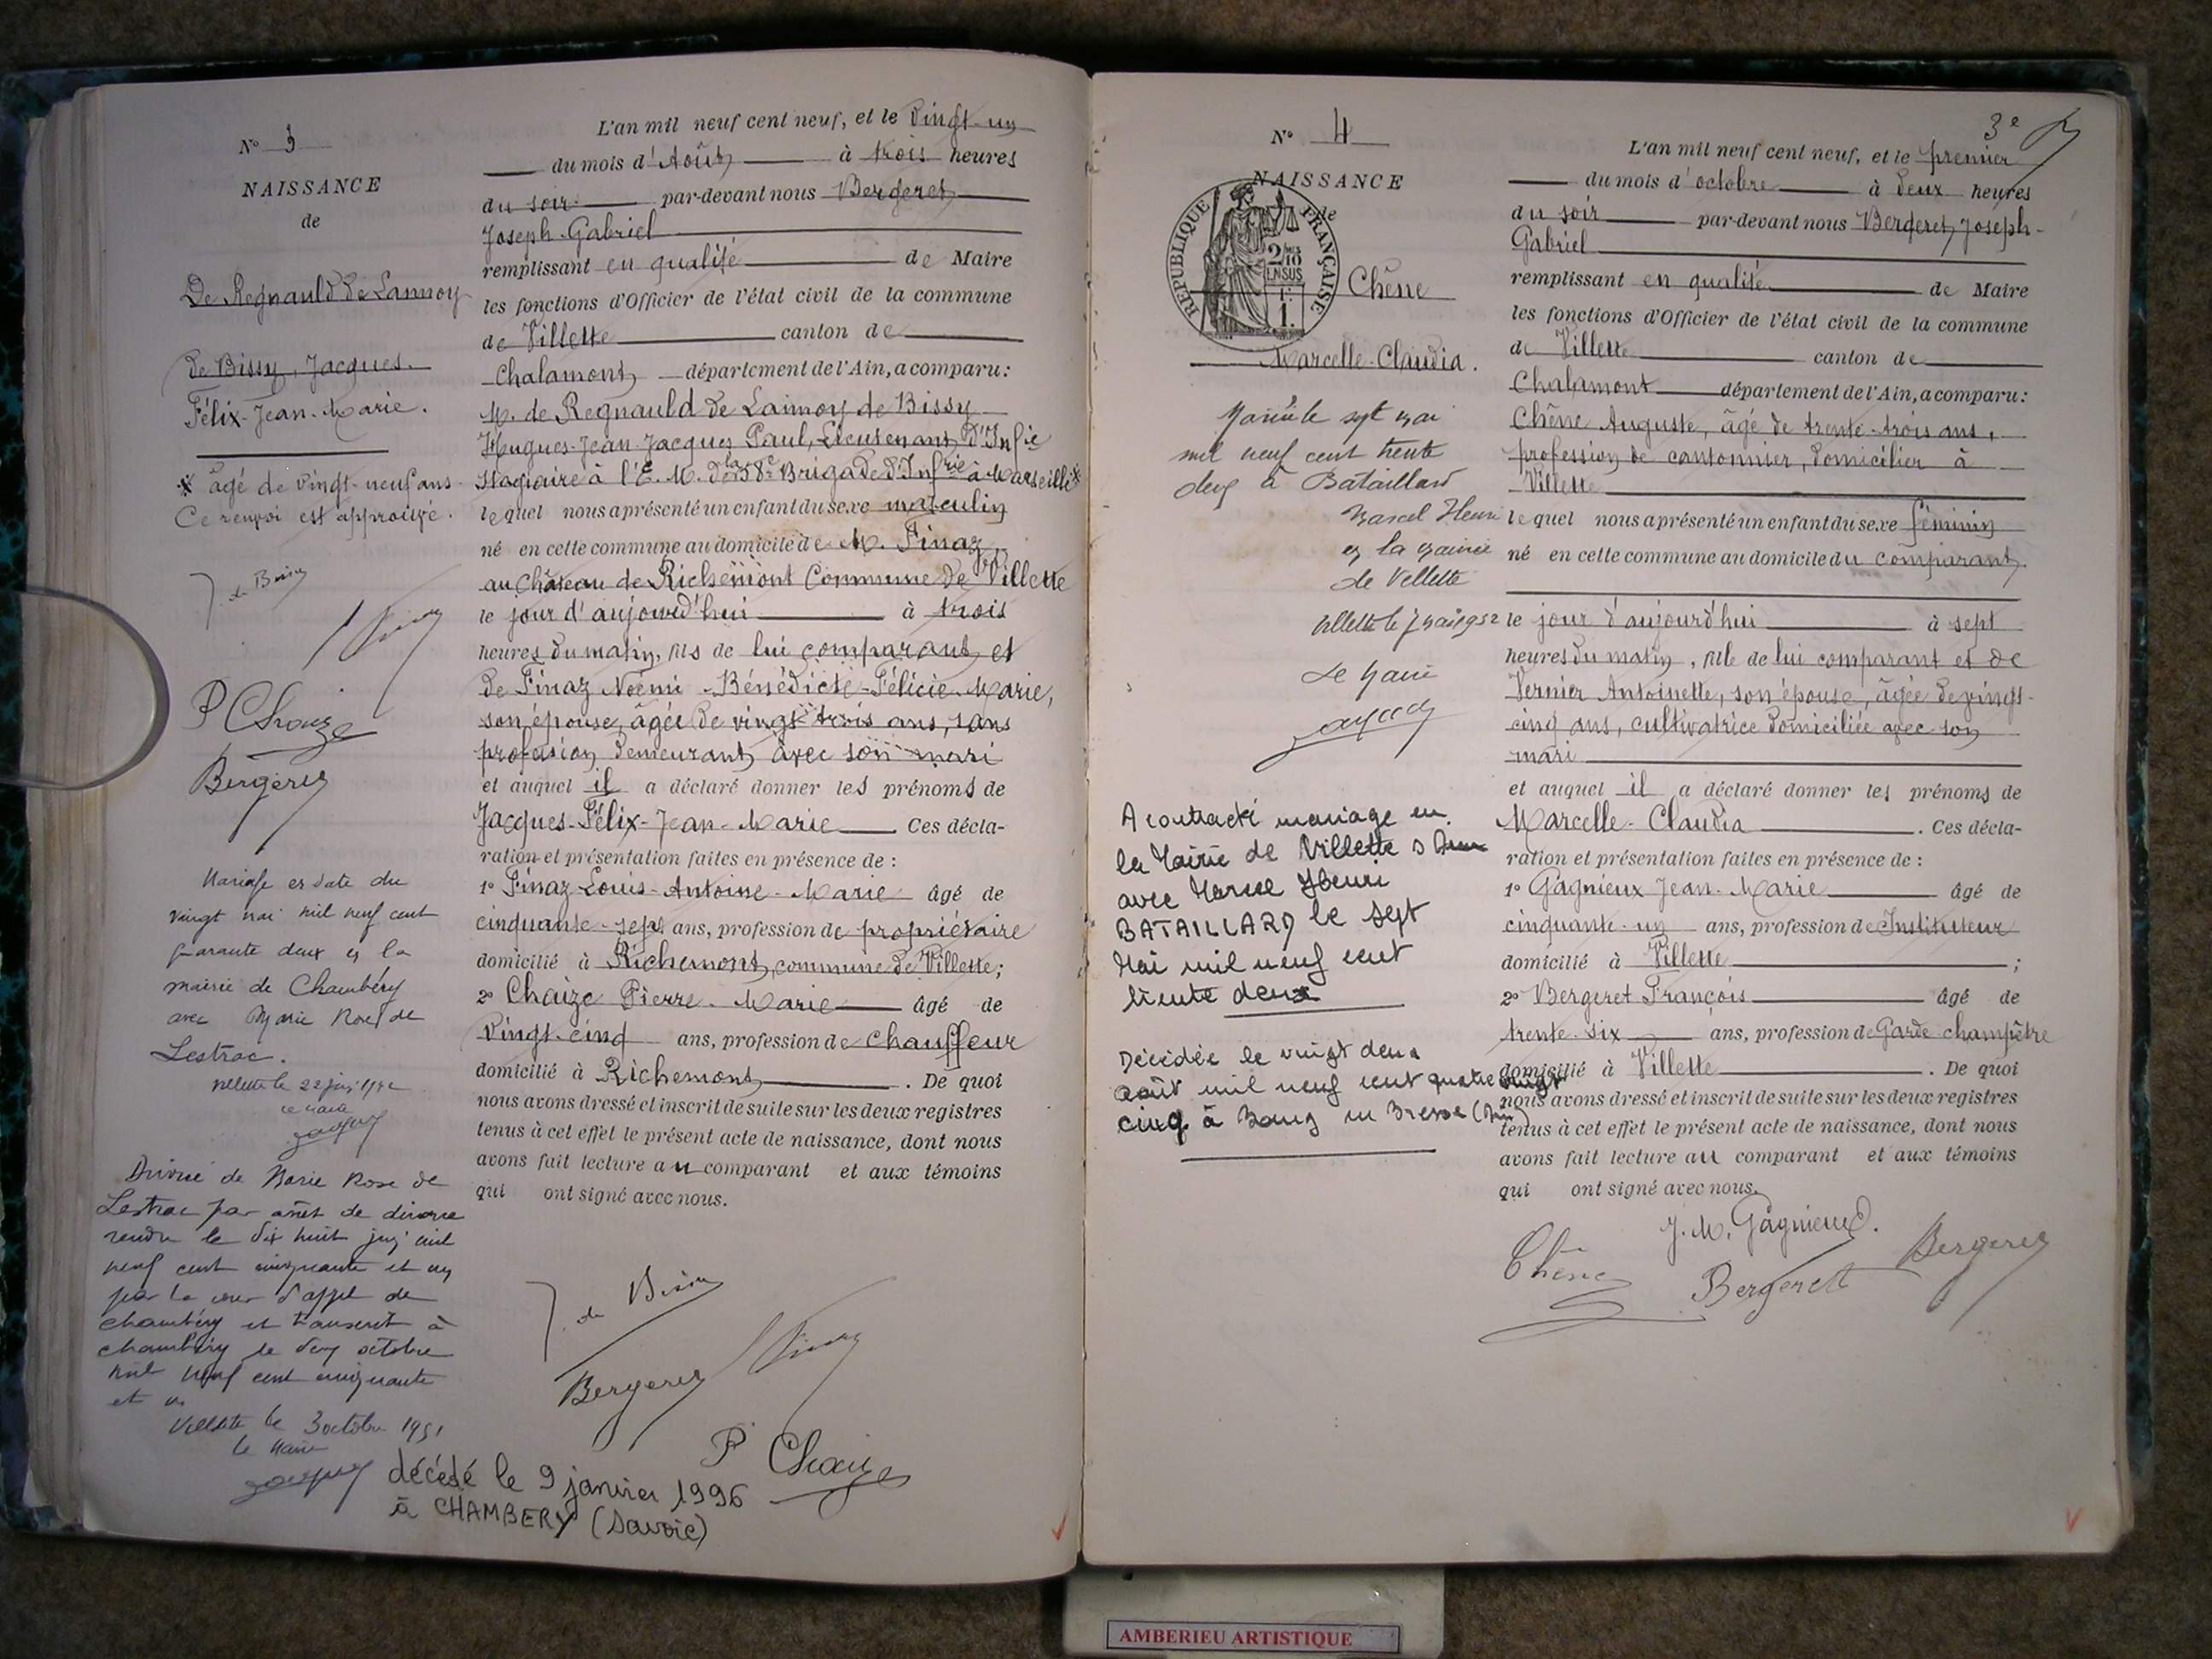 N° 3
NAISSANCE
de
De Regnauld de Lannoy
de Bissy, Jacques.
Félix-Jean-Marie.
* âgé de vingt-neuf ans
Ce renvoi est approuvé.
J. de Bissy
P Chaize
Bergeret
Mariage en date du
vingt mai mil neuf cent
quarante deux en la
mairie de Chambéry
avec Marie Rose de
Lestrac.
Villette le 22
Le Maire
Divorcé de Marie Rose de
Lestrac par arrêt de divorce
rendu le dix huit juin mil
neuf cent cinquante et un
par la cour d'appel de
Chambéry et transcrit à
Chambéry le deux octobre
mil neuf cent cinquante
et un
Villette le 3 octobre 1951
Le Maire
L'an mil neuf cent neuf, et le vingt-un
du mois d'Août à trois heures
du soir par-devant nous Bergeret
Joseph-Gabriel
remplissant en qualité de Maire
les fonctions d'Officier de l'état civil de la commune
de Villette canton de
Chalamont département de l'Ain, a comparu:
M. de Regnauld de Lannoy de Bissy
Hugues-Jean-Jacques Paul, Lieutenant d'Infie
Stagiaire à l'E. M. de la 58e Brigade d'Infrie à Marseille*
lequel nous a présenté un enfant du sexe masculin
né en cette commune au domicile de M. Finaz
au Château de Richemont Commune de Villette
le jour d'aujourd'hui à trois
heures du matin, fils de lui comparant et
de Finaz Noémi-Bénédicte-Félicie-Marie,
son épouse, âgée de vingt trois ans, sans
profession demeurant avec son mari
et auquel il a déclaré donner les prénoms de
Jacques-Félix-Jean-Marie Ces décla-
ration et présentation faites en présence de :
1° Finaz Louis-Antoine-Marie âgé de
cinquante-sept ans, profession de propriétaire
domicilié à Richemont, commune de Villette;
2° Chaize Pierre-Marie âgé de
vingt-cinq ans, profession de chauffeur
domicilié à Richemont . De quoi
nous avons dressé et inscrit de suite sur les deux registres
tenus à cet effet le présent acte de naissance, dont nous
avons fait lecture au comparant et aux témoins
qui ont signé avec nous.
J. de Bissy
Bergeret
P Chaize
décédé le 9 janvier 1996
à CHAMBERY (Savoie)
3e
N° 4
NAISSANCE
de
RÉPUBLIQUE FRANÇAISE
2/10
EN SUS
1f
Chêne
Marcelle-Claudia.
Mariée le sept mai
mil neuf cent trente
deux à Bataillard
Marcel Henri
en la mairie
de Villette
Villette le 7 mai 1932
Le Maire
A contracté mariage en
la Mairie de Villette s Ain
avec Marcel Henri
BATAILLARD le sept
Mai mil neuf cent
trente deux
Décédée le vingt deux
août mil neuf cent quatre vingt
cinq à Bourg en Bresse (Ain)
L'an mil neuf cent neuf, et le premier
du mois d'octobre à deux heures
du soir par-devant nous Bergeret, Joseph-
Gabriel
remplissant en qualité de Maire
les fonctions d'Officier de l'état civil de la commune
de Villette canton de
Chalamont département de l'Ain, a comparu:
Chêne Auguste, âgé de trente-trois ans,
profession de cantonnier, domicilier à
Villette
lequel nous a présenté un enfant du sexe féminin
né en cette commune au domicile du comparant.
le jour d'aujourd'hui à sept
heures du matin, fille de lui comparant et de
Vernier Antoinette, son épouse, âgée de vingt-
cinq ans, cultivatrice domiciliée avec son
mari
et auquel il a déclaré donner les prénoms de
Marcelle-Claudia . Ces décla-
ration et présentation faites en présence de :
1° Gagnieux Jean-Marie âgé de
cinquante-un ans, profession de Instituteur
domicilié à Villette ;
2° Bergeret François âgé de
trente-six ans, profession de Garde-champêtre
domicilié à Villette . De quoi
nous avons dressé et inscrit de suite sur les deux registres
tenus à cet effet le présent acte de naissance, dont nous
avons fait lecture au comparant et aux témoins
qui ont signé avec nous.
J. M. Gagnieux.
Chêne Bergeret Bergeret
AMBERIEU ARTISTIQUE